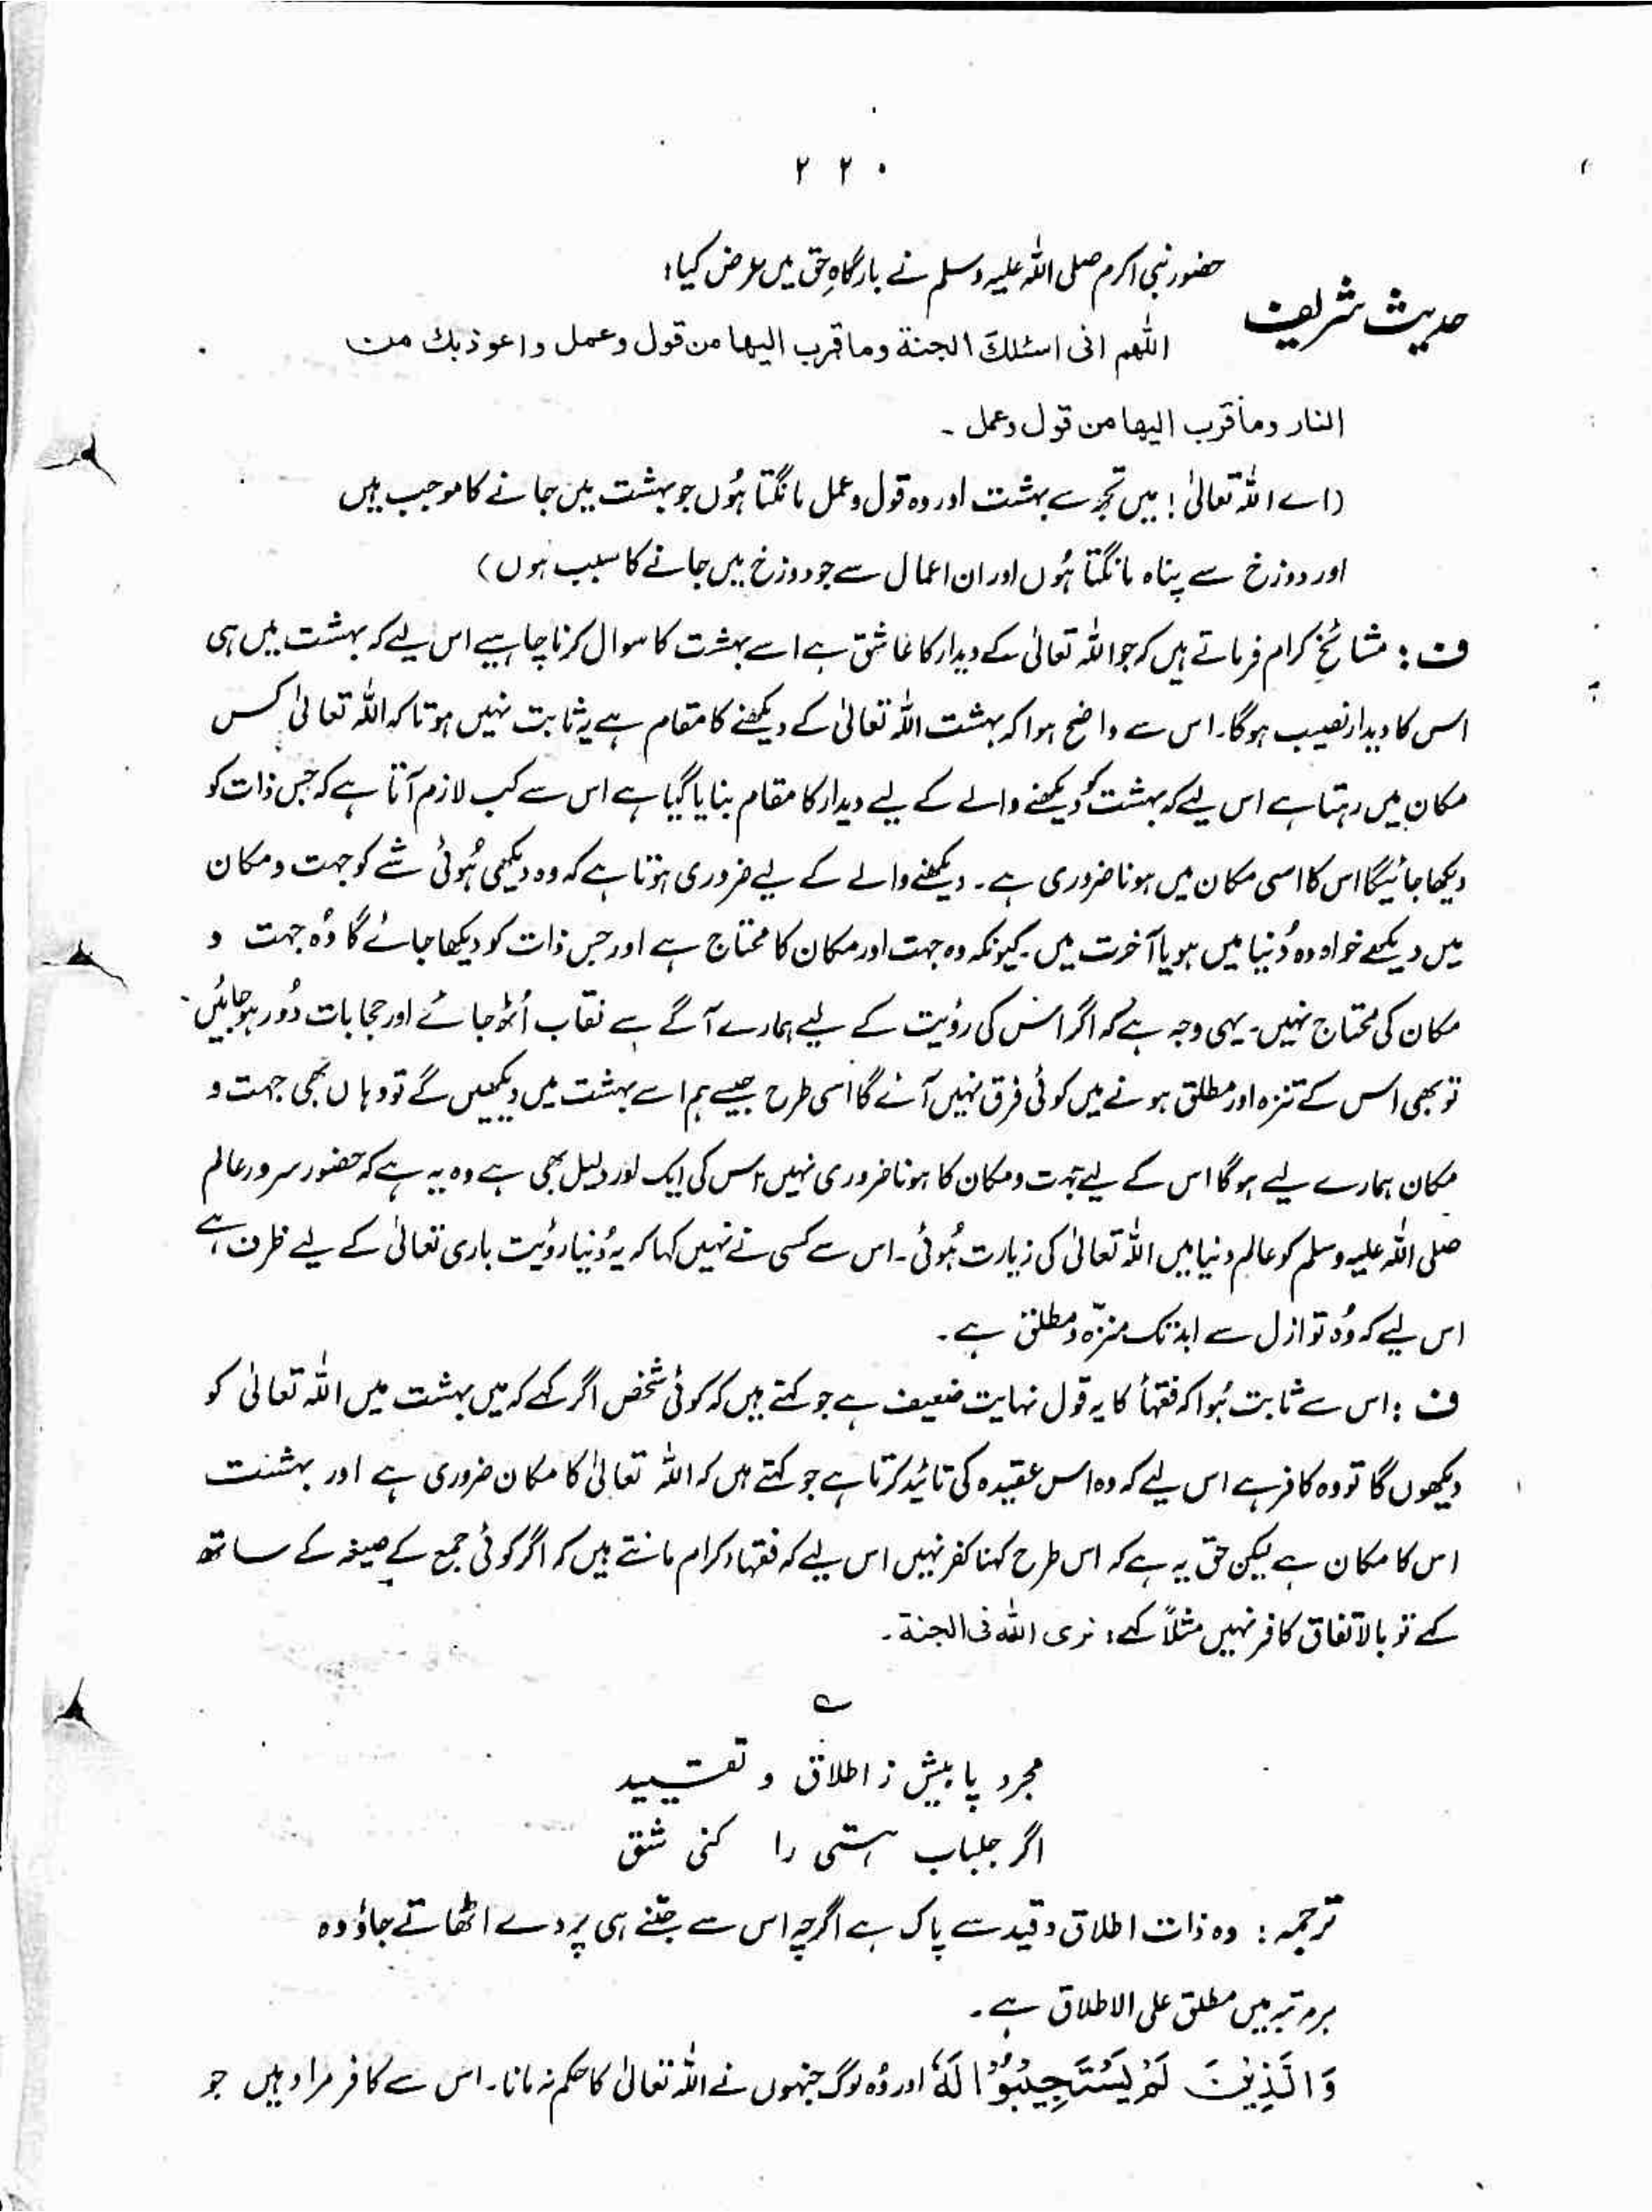 ۲۲۰
حدیث شریف
حضور نبی اکرم صلی اللہ علیہ وسلم نے بارگاہِ حق میں عرض کیا:
اللهم انی اسئلكَ الجنة وما قرب اليها من قول وعمل و اعوذ بك من
النار وما قرب اليها من قول وعمل ۔
(اے اللہ تعالیٰ! میں تجھ سے بہشت اور وہ قول و عمل مانگتا ہُوں جو بہشت میں جانے کا موجب ہیں
اور دوزخ سے پناہ مانگتا ہُوں اور ان اعمال سے جو دوزخ میں جانے کا سبب ہوں)
ف: مشائخِ کرام فرماتے ہیں کہ جو اللہ تعالیٰ کے دیدار کا عاشق ہے اسے بہشت کا سوال کرنا چاہیے اس لیے کہ بہشت میں ہی
اس کا دیدار نصیب ہوگا۔ اس سے واضح ہوا کہ بہشت اللہ تعالیٰ کے دیکھنے کا مقام ہے یہ ثابت نہیں ہوتا کہ اللہ تعالیٰ کس
مکان میں رہتا ہے اس لیے کہ بہشت کو دیکھنے والے کے لیے دیدار کا مقام بنایا گیا ہے اس سے کب لازم آتا ہے کہ جس ذات کو
دیکھا جائیگا اس کا اسی مکان میں ہونا ضروری ہے۔ دیکھنے والے کے لیے ضروری ہوتا ہے کہ وہ دیکھی ہُوئی شے کو جہت و مکان
میں دیکھے خواہ وہ دُنیا میں ہو یا آخرت میں۔ کیونکہ وہ جہت اور مکان کا محتاج ہے اور جس ذات کو دیکھا جائے گا وُہ جہت و
مکان کی محتاج نہیں۔ یہی وجہ ہے کہ اگر اس کی رؤیت کے لیے ہمارے آگے سے نقاب اُٹھ جائے اور حجابات دُور ہو جائیں
تو بھی اس کے تنزہ اور مطلق ہونے میں کوئی فرق نہیں آئے گا اسی طرح جیسے ہم اسے بہشت میں دیکھیں گے تو وہاں بھی جہت و
مکان ہمارے لیے ہوگا اس کے لیے جہت و مکان کا ہونا ضروری نہیں اس کی ایک اور دلیل بھی ہے وہ یہ ہے کہ حضور سرور عالم
صلی اللہ علیہ وسلم کو عالمِ دنیا میں اللہ تعالیٰ کی زیارت ہُوئی۔ اس سے کسی نے نہیں کہا کہ یہ دُنیا رؤیت باری تعالیٰ کے لیے ظرف ہے
اس لیے کہ وُہ تو ازل سے ابد تک منزّہ و مطلق ہے۔
ف: اس سے ثابت ہُوا کہ فقہأ کا یہ قول نہایت ضعیف ہے جو کہتے ہیں کہ کوئی شخص اگر کہے کہ میں بہشت میں اللہ تعالیٰ کو
دیکھوں گا تو وہ کافر ہے اس لیے کہ وہ اس عقیدہ کی تائید کرتا ہے جو کہتے ہیں کہ اللہ تعالیٰ کا مکان ضروری ہے اور بہشت
اس کا مکان ہے لیکن حق یہ ہے کہ اس طرح کہنا کفر نہیں اس لیے کہ فقہاء کرام مانتے ہیں کہ اگر کوئی جمع کے صیغہ کے ساتھ
کہے تو بالاتفاق کافر نہیں مثلاً کہے: نری اللہ فی الجنة۔
؎
مجرد یابیش ز اطلاق و تقیید
اگر جلباب ہستی را کنی شق
ترجمہ: وہ ذات اطلاق و قید سے پاک ہے اگرچہ اس سے جتنے ہی پردے اٹھاتے جاؤ وہ
ہر مرتبہ میں مطلق علی الاطلاق ہے۔
وَالَّذِیْنَ لَمْ یَسْتَجِیْبُوْا لَهٗ اور وُہ لوگ جنہوں نے اللہ تعالیٰ کا حکم نہ مانا۔ اس سے کافر مراد ہیں جو